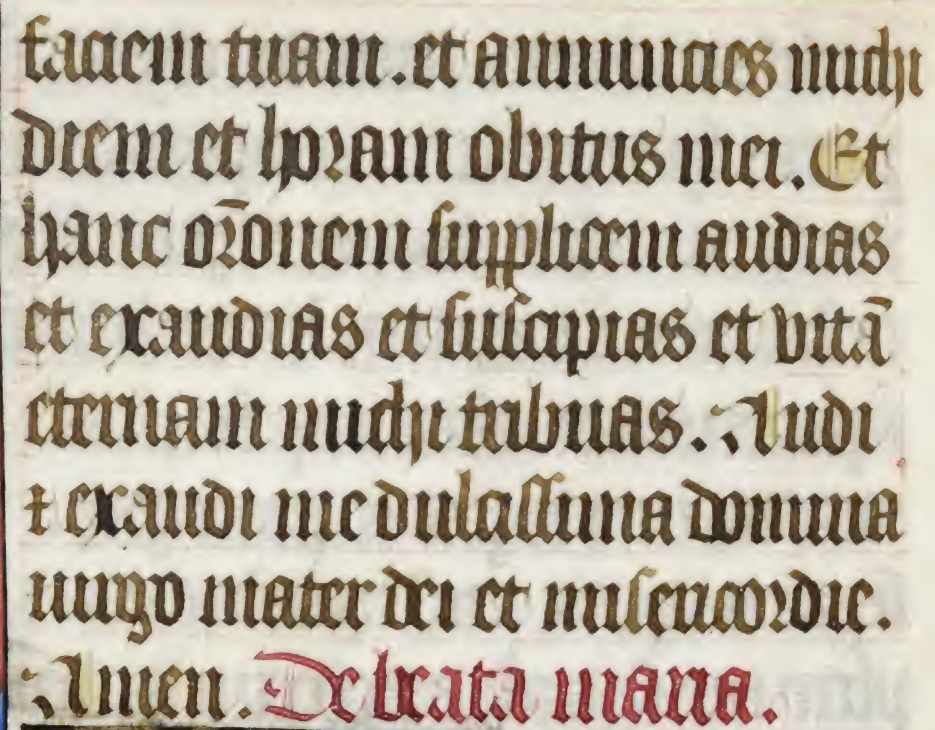 faciem tuam. et annuncies michi
diem et horam obitus mei. Et
hanc or̄onem supplicem audias
et exaudias et suscipias et vitā
eternam michi tribuas. Audi
⁊ exaudi me dulcissima domina
uirgo mater dei et misericordie.
Amen. De beata maria.